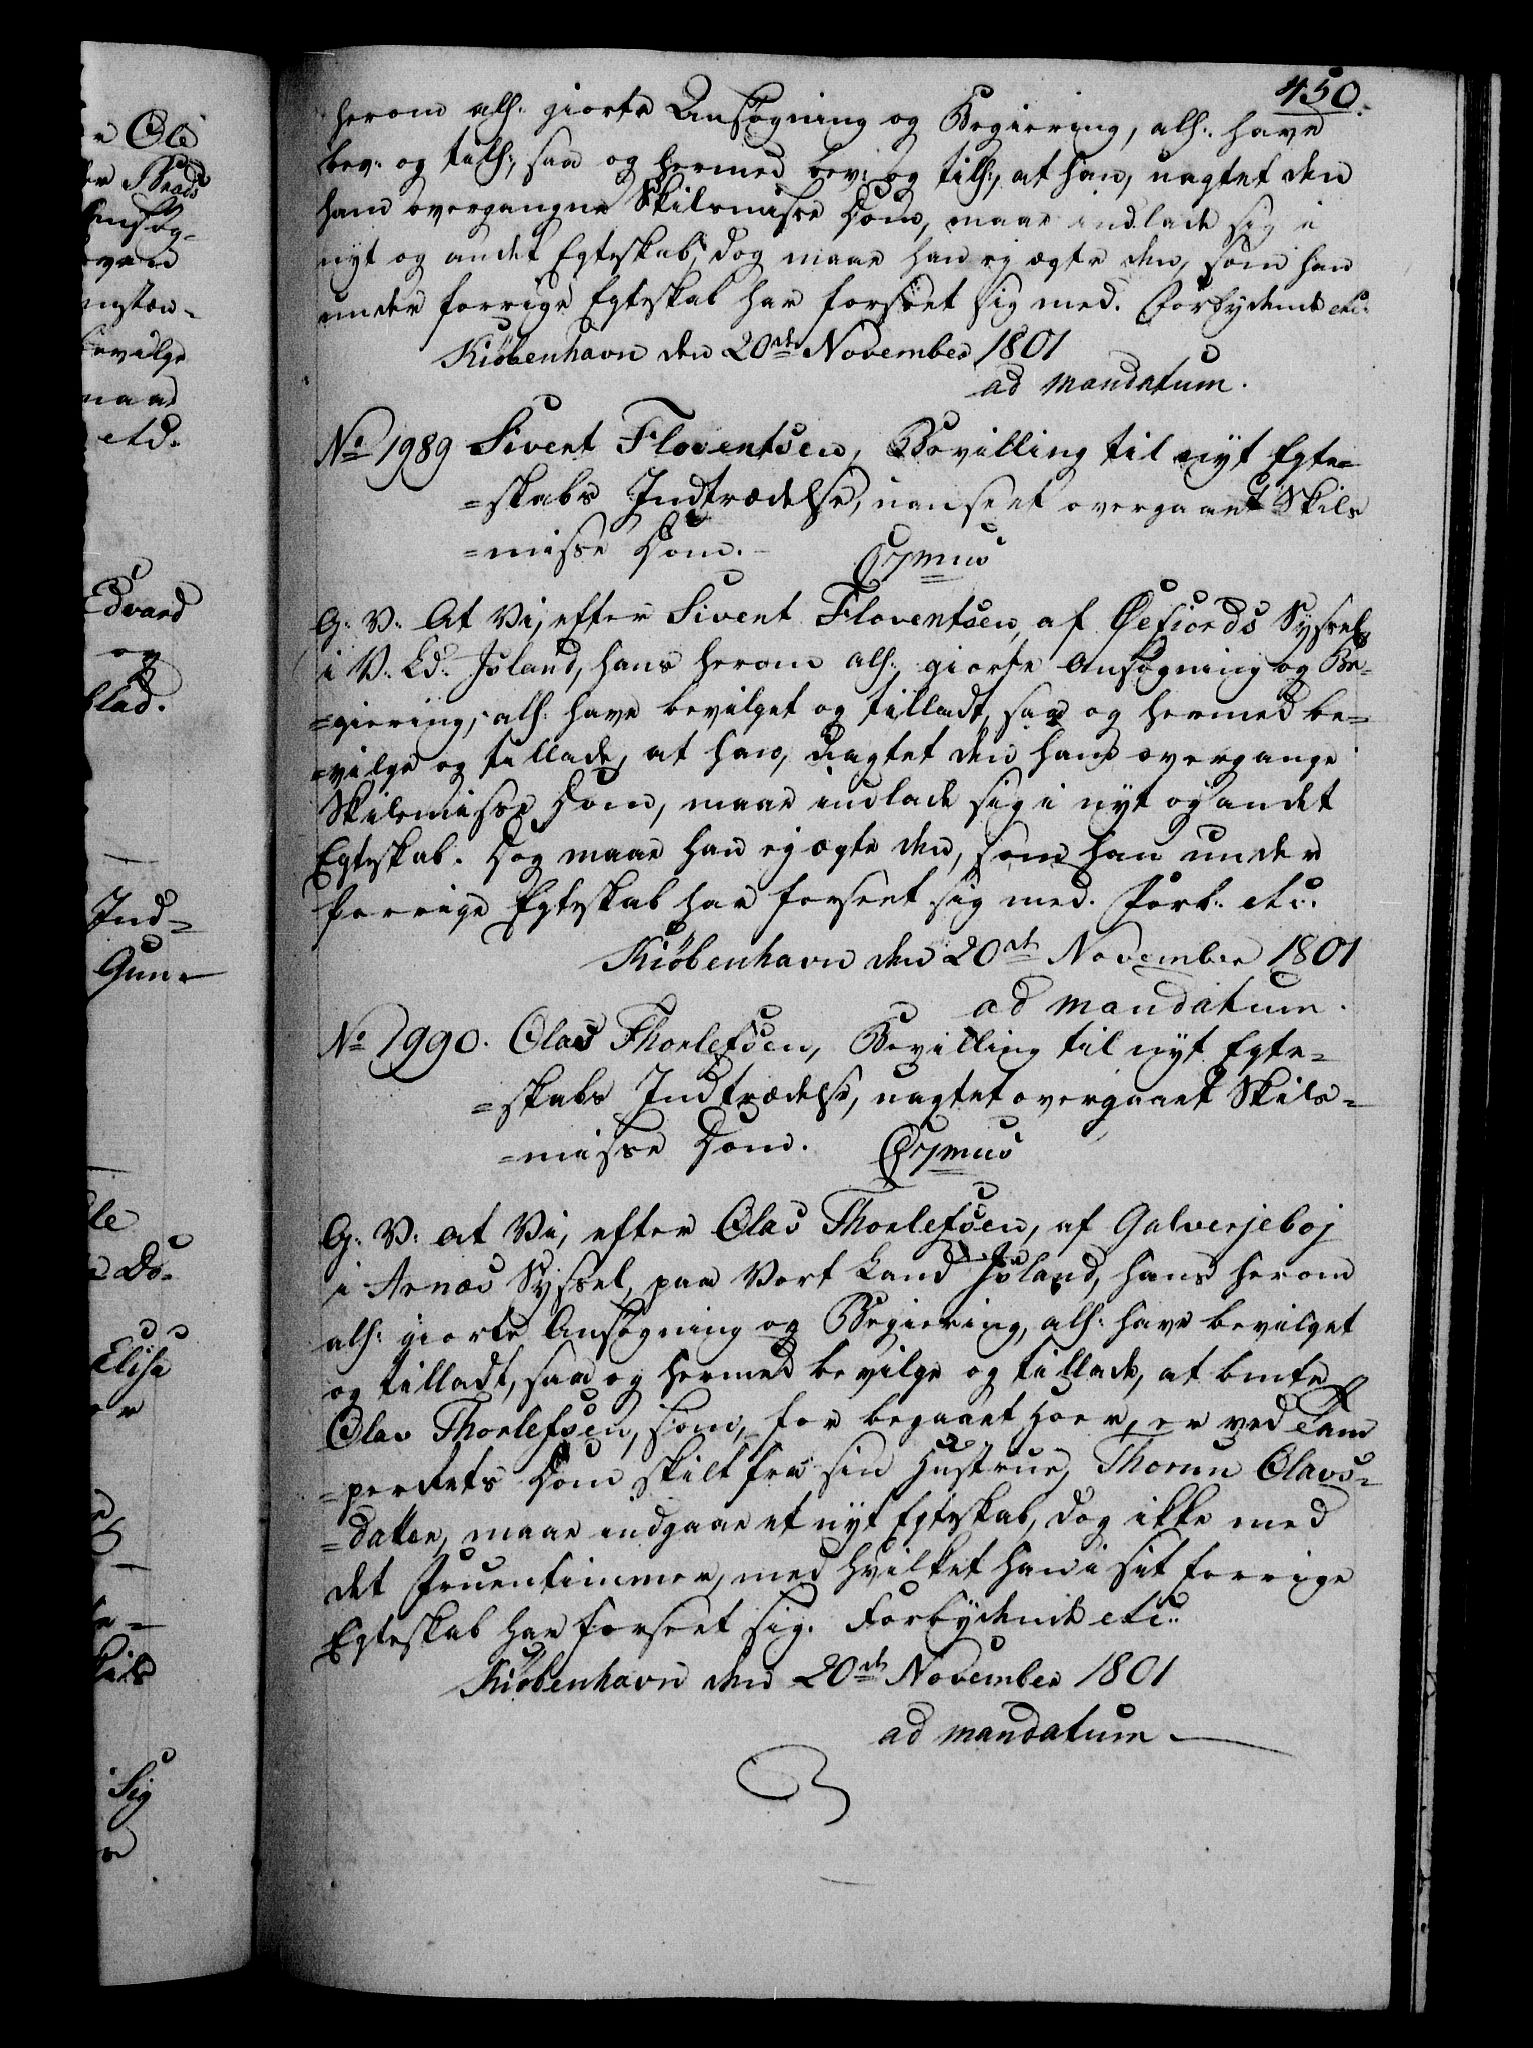 450.
herom alh: giorte Ansøgning og Begiering, alh: have
bev: og till:, saa og hermed bev: og till:, at han, uagtet den
ham overgangne Skilsmisse Dom, maae indlade sig i
nyt og andet Egteskab, dog maae han ej ægte den, som han
under forrige Egteskab har forseet sig med. Forbydende etc:
Kiöbenhavn den 20de November 1801
ad mandatum.
No 1989 Sivert Floventsen, Bevilling til nyt Egte=
=skabs Indtrædelse, uanseet overgaaet Skils
=misse Dom. – Gratis
G: V: At Vi, efter Sivert Floventsen, af Øefiords Syssel,
i V: Ld: Island, hans herom alh: giorte Ansøgning og Be=
=giering, alh: have bevilget og tilladt, saa og hermed be=
=vilge og tillade, at han, uagtet den ham overgange
Skilsmisse Dom, maae indlade sig i nyt og andet
Egteskab. Dog maae han ej ægte den, som han under
forrige Egteskab har forseet sig med. Forb: etc:
Kiöbenhavn den 20de November 1801
ad mandatum.
No 1990. Olav Thorlefsen, Bevilling til nyt Egte=
=skabs Indtrædelse, uagtet overgaaet Skils=
=misse Dom. Gratis
G: V: At Vi, efter Olav Thorlefsen, af Galverjeboj
i Arnæs Syssel, paa Vort Land Island, hans herom
alh: giorte Ansøgning og Begiering, alh: have bevilget
og tilladt, saa og hermed bevilge og tillade, at bemte
Olav Thorlefsen, som, for begaaet Hoer, er ved Tam
=perrets Dom skilt fra sin Hustrue, Thorun Olavs=
=datter, maae indgaae et nyt Egteskab, dog ikke med
det Fruentimmer, med hvilket han i sit forrige
Egteskab har forseet sig. Forbydende etc:
Kiöbenhavn den 20de November 1801
ad mandatum
e Ole
Ansøg=
even
mstæn=
bevilge
maae
etc.
Edvard
og
Ind=
Gun=
Ole
Elise
Sig